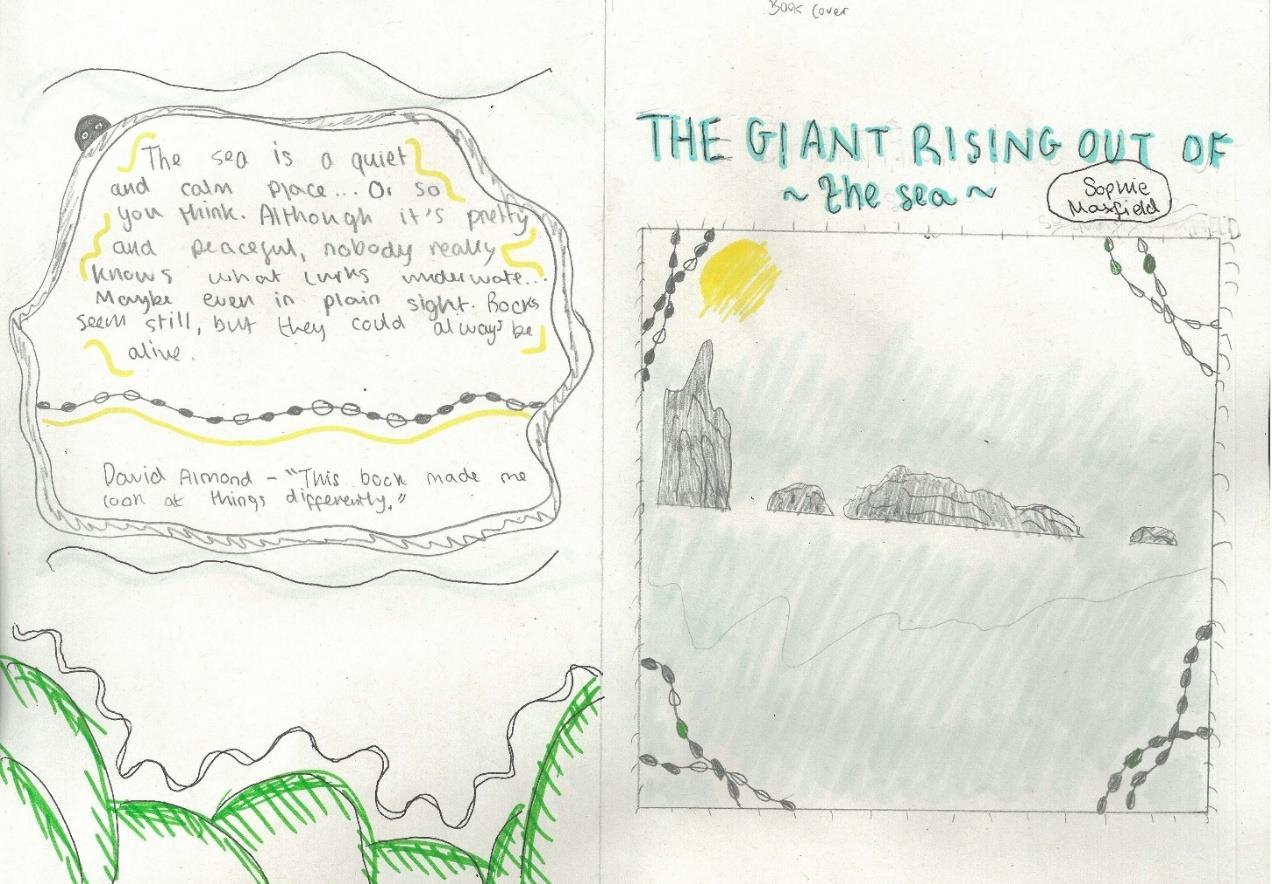 The sea is a quiet
and calm place... Or so
you think. Although it's pretty
and peaceful, nobody really
knows what lurks underwate...
Maybe even in plain sight. Rocks
seem still, but they could always be
alive.
David Almond - "This book made me
look at things differently."
Book Cover
THE GIANT RISING OUT OF
~ the sea ~
Sophie
Maxfield